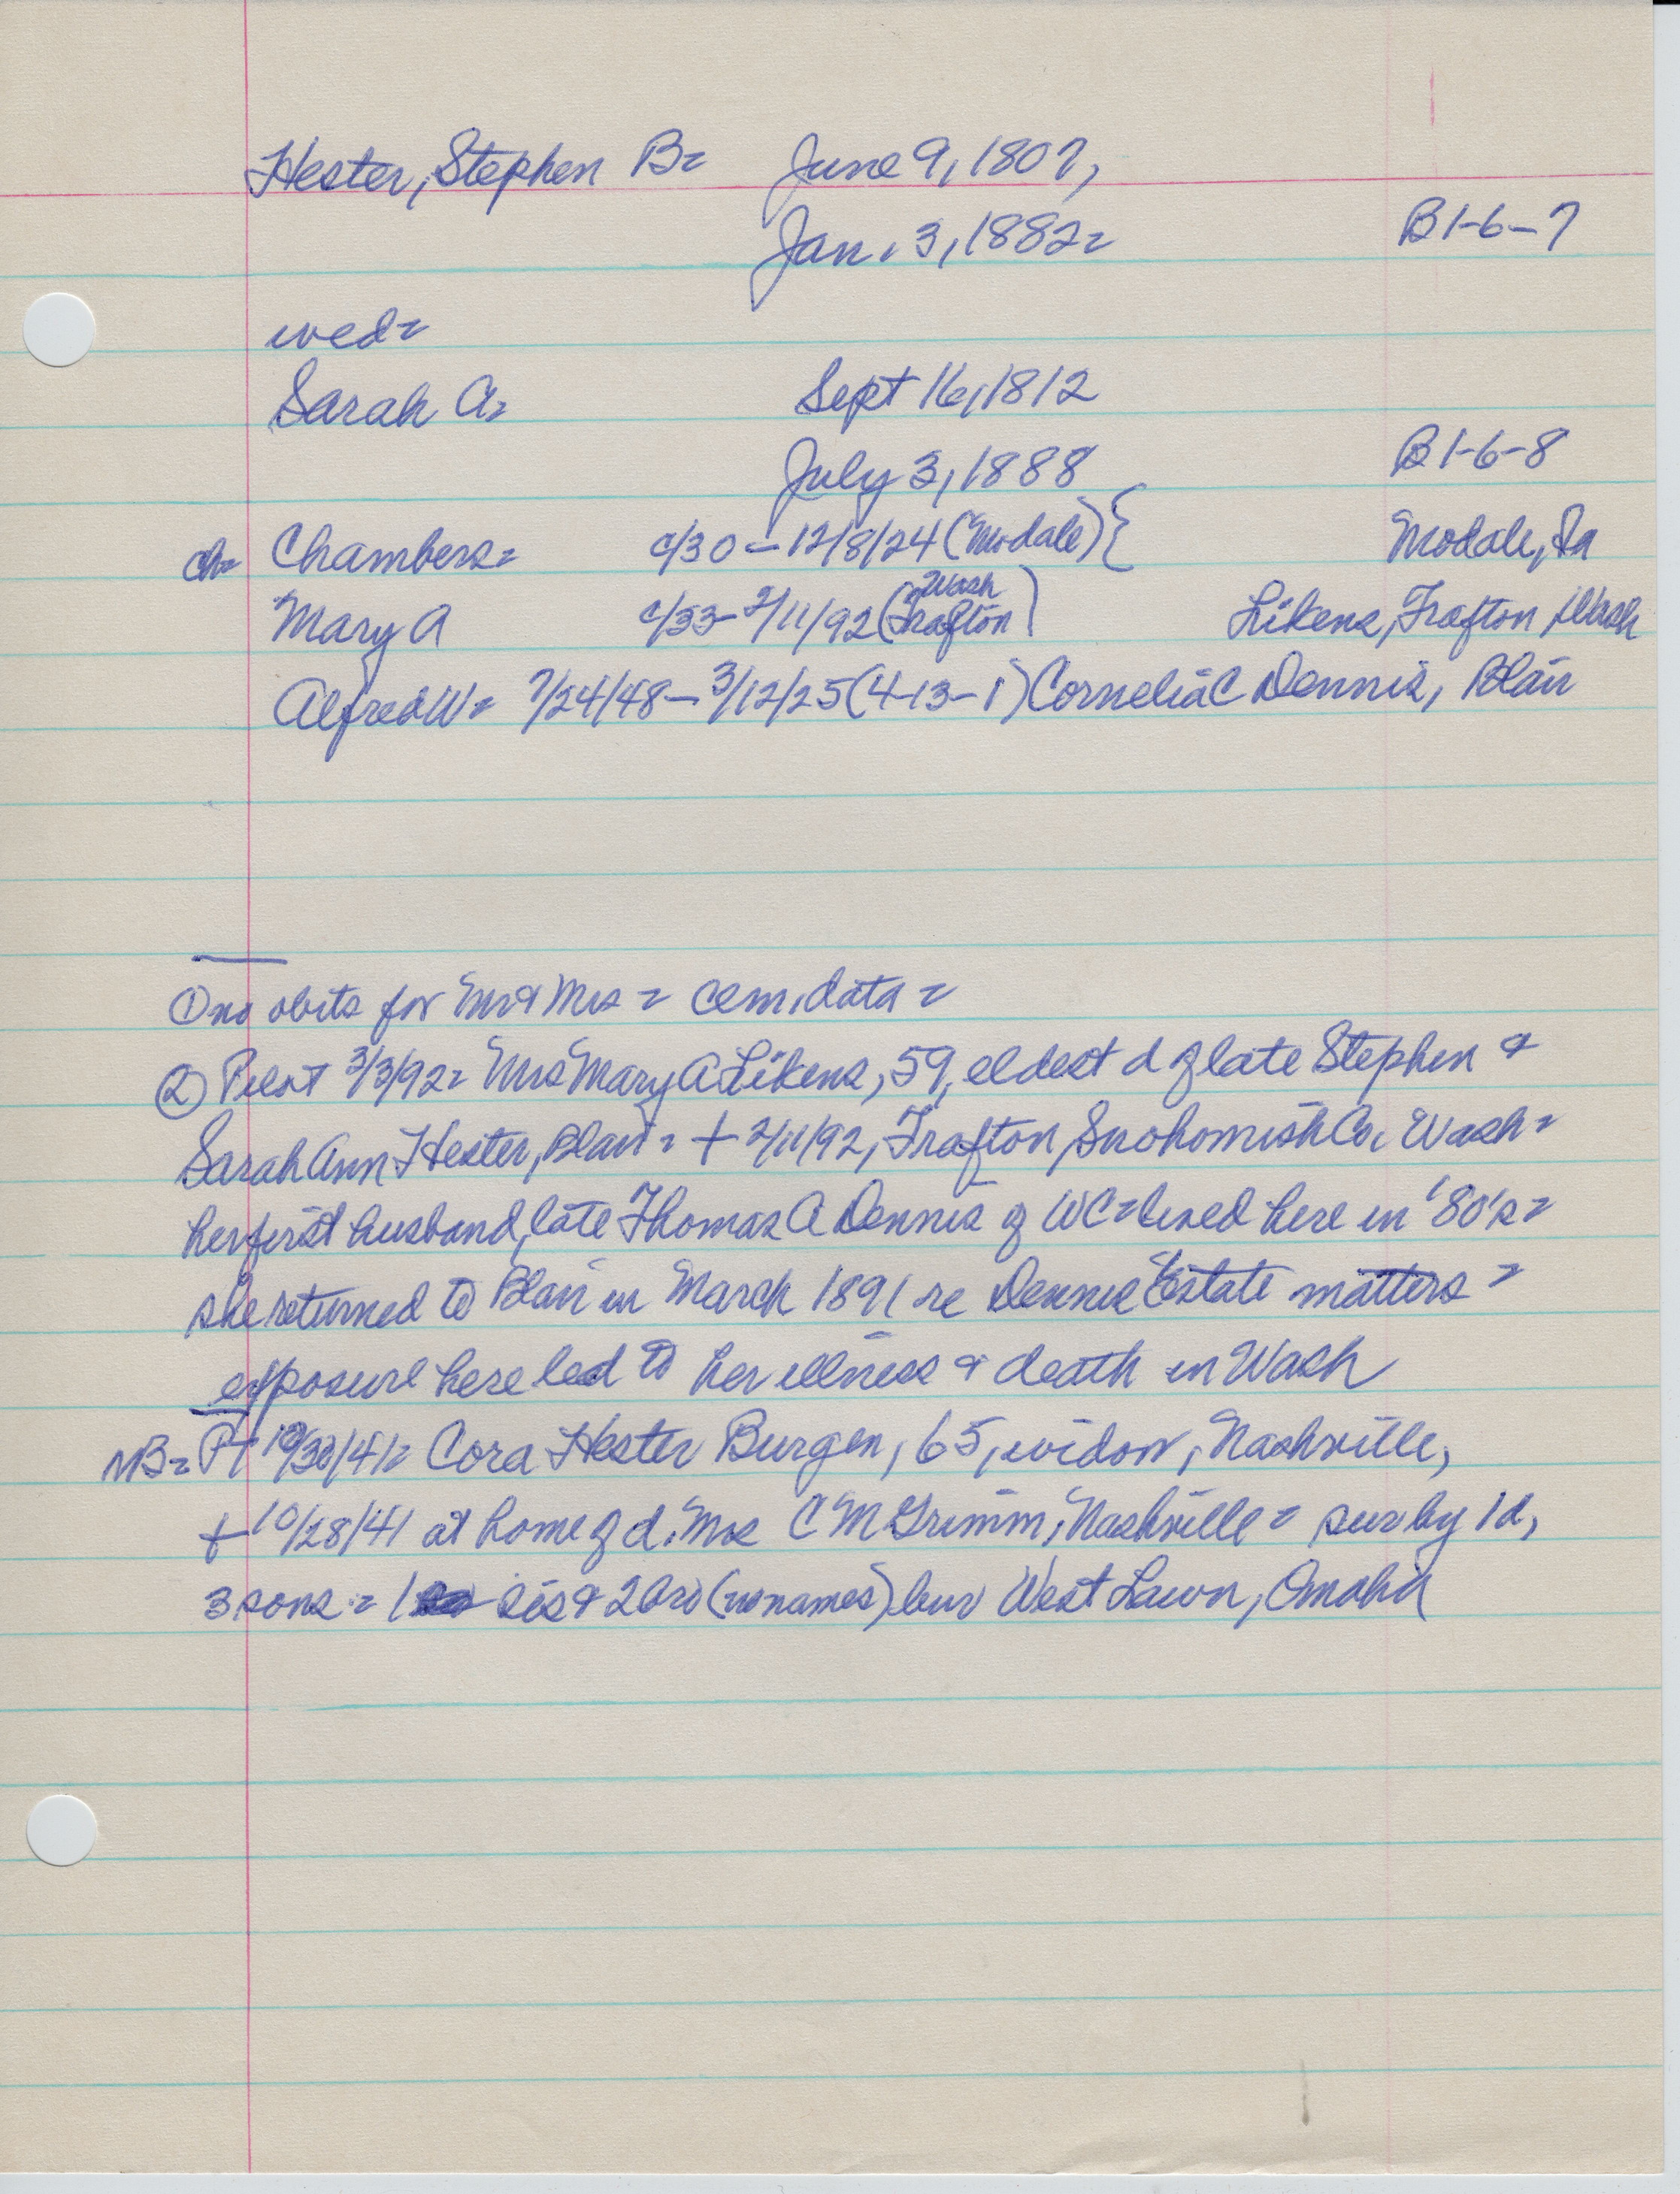 Hester, Stephen B= June 9, 1807,
Jan. 3, 1882= B1-6-7
wed=
Sarah A= Sept 16, 1812
July 3, 1888 B1-6-8
ch= Chambers= c/30 - 12/8/24 (Modale) { Modale, Ia
Mary A c/33- 2/11/92 (Trafton Wash) Likens, Trafton, Wash
Alfred W= 7/24/48 - 3/12/25 (4-13-1) Cornelia C Dennis, Blair
① no obits for Mr & Mrs = cem. data =
② Pilot 3/3/92= Mrs Mary A Likens, 59, eldest d of late Stephen &
Sarah Ann Hester, Blair = + 2/11/92, Trafton, Snohomish Co. Wash=
her first husband, late Thomas A Dennis of WC = lived here in '80's =
she returned to Blair in March 1891 re Dennis Estate matters =
exposure here led to her illness & death in Wash
NB= PT 10/30/41= Cora Hester Burgen, 65, widow, Nashville,
+ 10/28/41 at home of d. Mrs C M Grimm, Nashville = sur by 1d,
3 sons = 1 sis & 2 bro (no names) bur West Lawn, Omaha